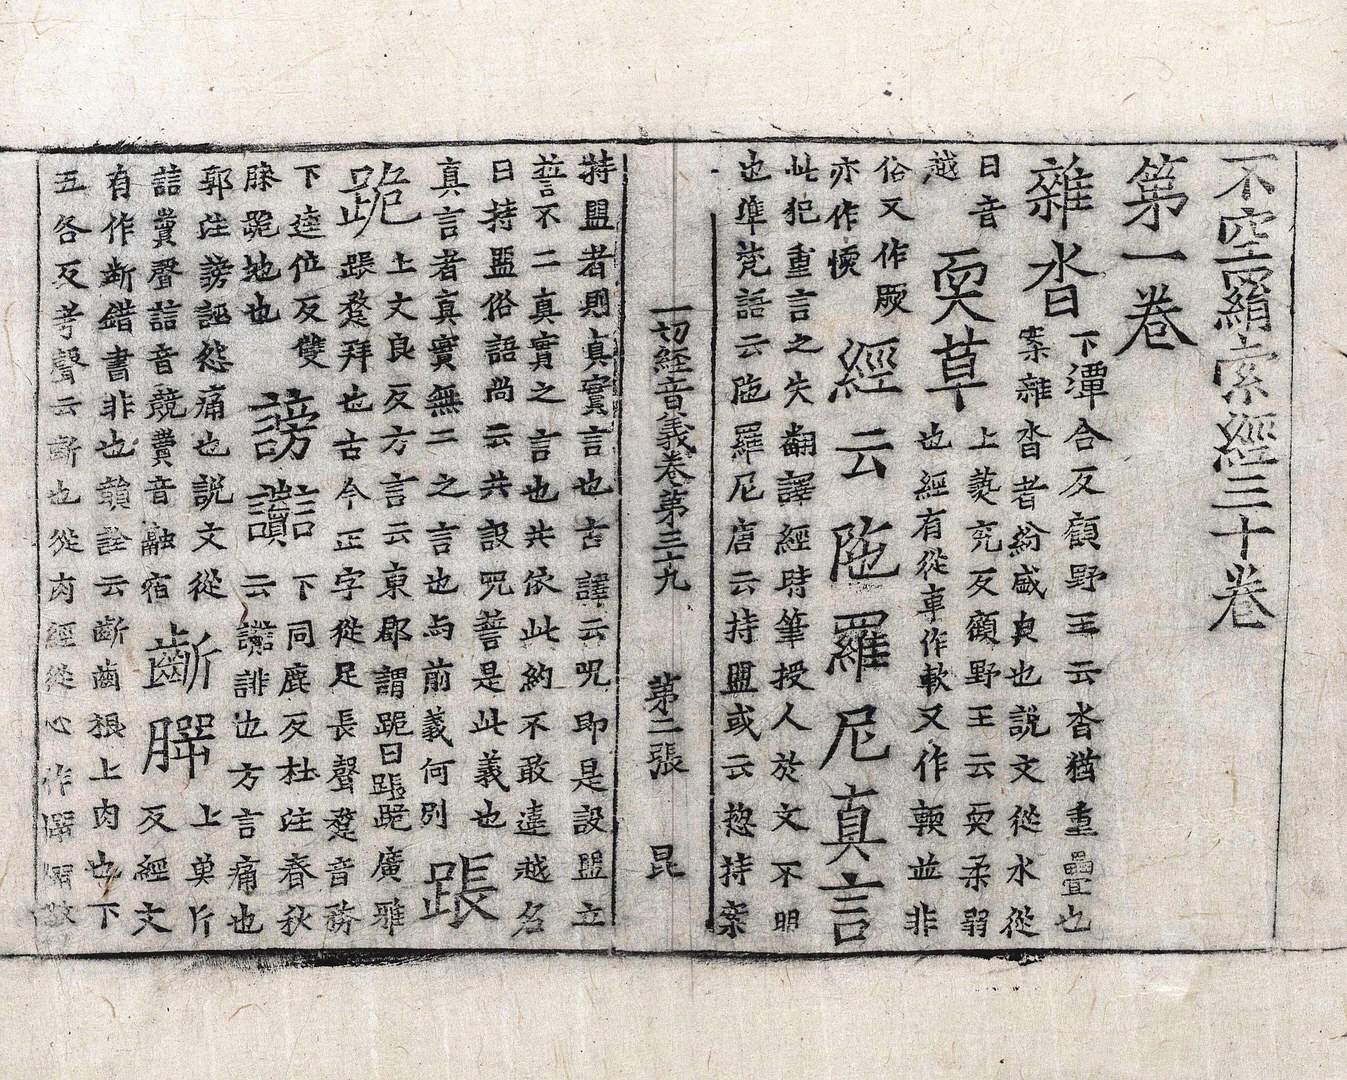 不空羂索經三十卷
第一卷
雜沓
下潭合反顧野王云沓猶重疊也
案雜沓者紛盛皃也說文從水從
日音
越
耎草
上蕤兖反顧野王云耎柔弱
也經有從車作軟又作輭並非
俗又作㞮
亦作愞
經云陁羅尼真言
此犯重言之失翻譯經時筆授人於文不明
也準梵語云陁羅尼唐云持盟或云惣持案
一切經音義卷第三十九 第二張 昆
持盟者則真實言也古譯云呪即是設盟立
誓不二真實之言也共依此約不敢違越名
曰持盟俗語尚云共設呪誓是此義也
真言者真實無二之言也与前義何別
䠆
跪
上文良反方言云東郡謂跪曰䠆跪廣雅
䠆蹔拜也古今正字從足長聲蹔音務
下逵位反雙
膝跪地也
謗讟
下同鹿反杜注春秋
云讟誹也方言痛也
郭注謗誣怨痛也說文從
誩賣聲誩音競賣音融宿
齗腭
上莫斤
反經文
有作齗錯書非也韻詮云齗齒根上肉也下
五各反考聲云齗也從肉經從心作